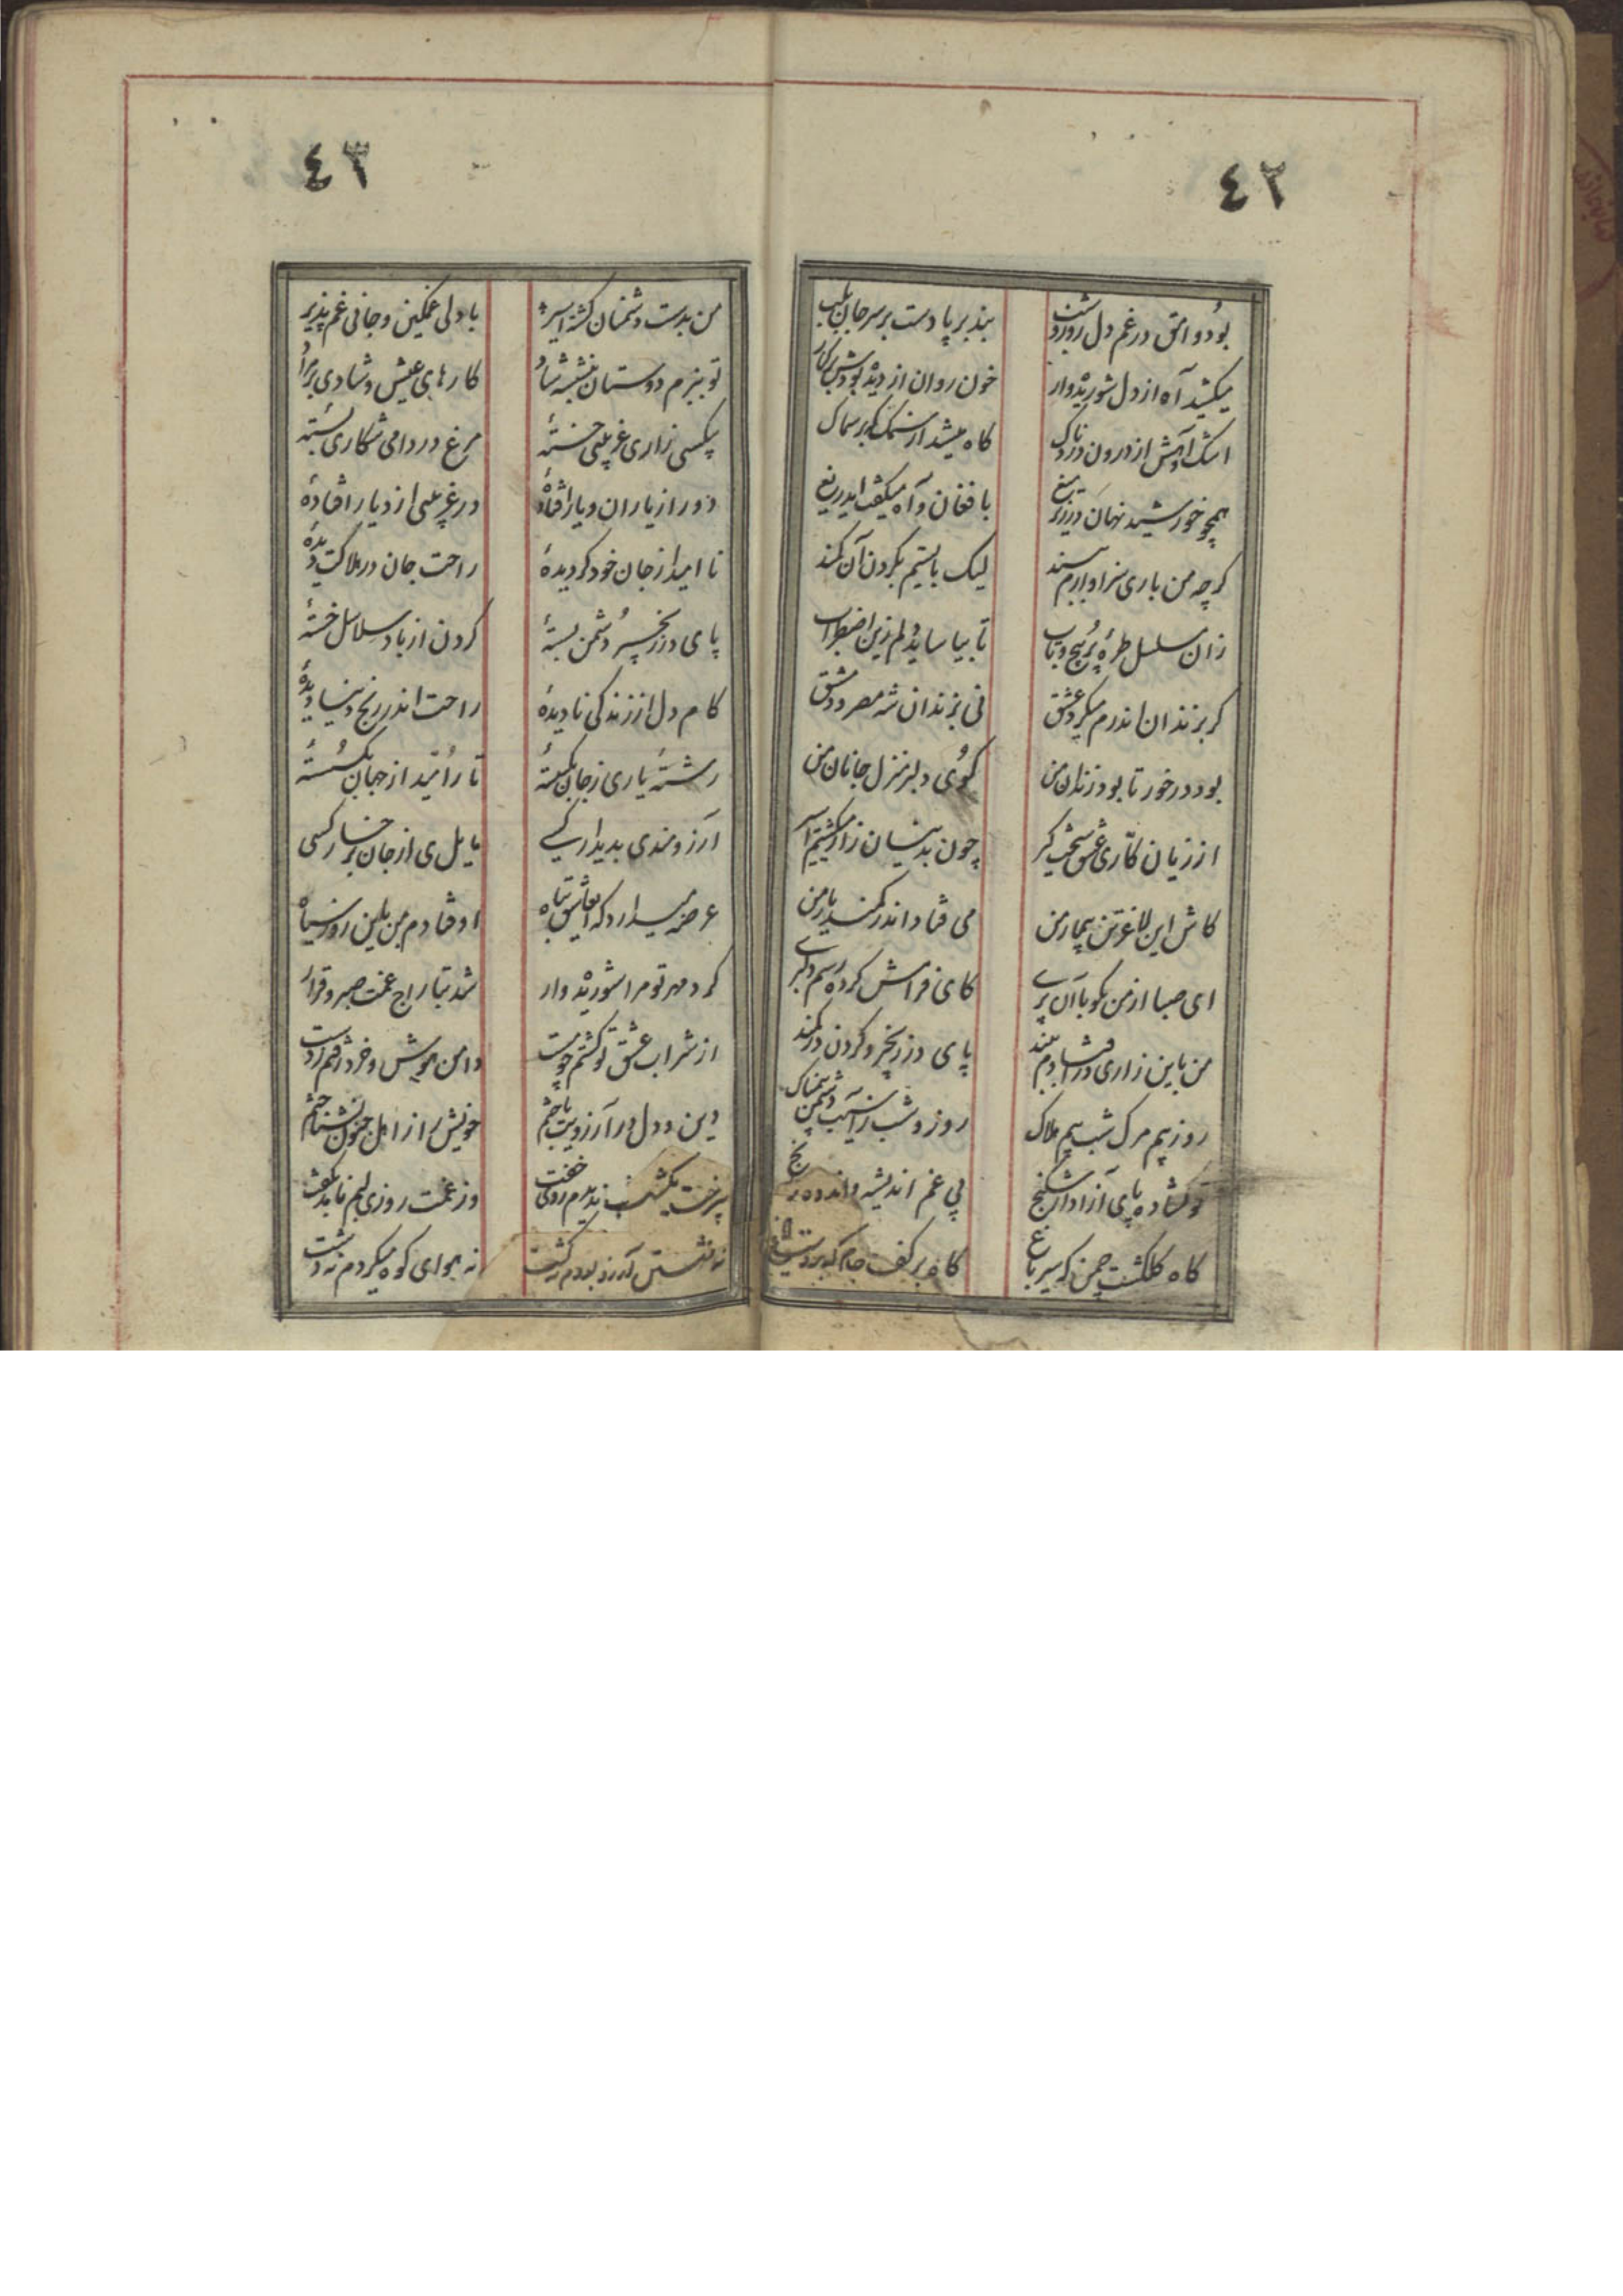 ٤٢
بود وامق در غم دل روز و شب
بند بر پا دست بر سر جان بلب
میکشید آه از دل شوریده وار
خون روان از دیده بودش بر کنار
اشک و آهش از درون دردناک
گاه میشد از سمک گه بر سماک
همچو خورشید نهان در زیر میغ
با فغان و آه میگفت ایدریغ
گرچه من باری سزاوارم ببند
لیک بایستیم بگردن آن کمند
زان مسلسل طرهٔ پر پیچ و تاب
تا بیاساید دلم زین اضطراب
گر بزندان اندرم میکرد عشق
نی بزندان شه مصر و دمشق
بود در خور تا بود زندان من
کوی دلبر منزل جانان من
از زیان کاری عشق سخت گیر
چون بدینسان زار میگشتم اسیر
کاش این لاغر تن بیمار من
می فتاد اندر کمند یار من
ای صبا از من بگو با آن پری
کای فرامش کرده رسم دلبری
من باین زاری در افتادم ببند
پای در زنجیر و گردن در کمند
روز بیم مرگ شب بیم هلاک
روز و شب ز آسیب دشمن بیمناک
تو گشاده پای آزاد از شکنج
بی غم اندیشه و اندوه رنج
گاه گلگشت چمن گه سیر باغ
گاه بر کف جام گه بر دست
٤٣
من بدست دشمنان گشته اسیر
با دلی غمگین و جانی غم پذیر
تو ببزم دوستان بنشسته شاد
کارهای عیش و شادی بر مراد
بیکسی زاری غریبی خستهٔ
مرغ در دامی شکاری بستهٔ
دور از یاران و یار افتادهٔ
در غریبی از دیار افتادهٔ
نا امید از جان خود گردیدهٔ
راحت جان در هلاکت دیدهٔ
پای در زنجیر دشمن بستهٔ
گردن از باد سلاسل خستهٔ
کام دل از زندگی نادیدهٔ
راحت اندر رنج دنیا دیدهٔ
رشتهٔ یاری ز جان بگسستهٔ
تار امّید از جهان بگسستهٔ
آرزومندی بدیدار کسی
مایل ی از جان برخسار کسی
عرضه میدارد که ایعاشق تباه
اوفتادم من باین روز سیاه
کرد مهر تو مرا شوریده وار
شد بتاراج غمت صبر و قرار
از شراب عشق تو گشتم چو مست
دامن هوش و خرد رفتم ز دست
دین و دل در آرزویت باختم
خویش را از اهل جنون نشناختم
بر نخت یکشب ندیدم روی خفت
وز غمت روزی لبم ناید بگفت
نه نشستن آرزو بودم نه گشت
نه هوای کوه میکردم نه دشت